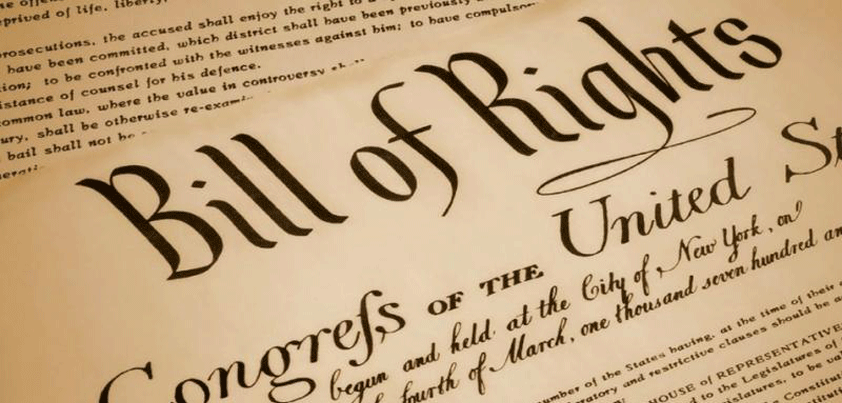 prived of life, liberty,
prosecutions, the accused shall enjoy the right to a
have been committed, which district shall have been previously
ion; to be confronted with the witnesses against him; to have compulsor
istance of counsel for his defence.
ommon law, where the value in controversy shall
ury, shall be otherwise re-exami
bail shall not be
Bill of Rights
Congreſs OF THE United St
begun and held at the City of New York, on
fourth of March, one thousand seven hundred an
umber of the States having, at the time of their
ratory and restrictive clauses should be a
HOUSE of REPRESENTATIVE
d to the Legislatures of
islatures, to be val
Constituti